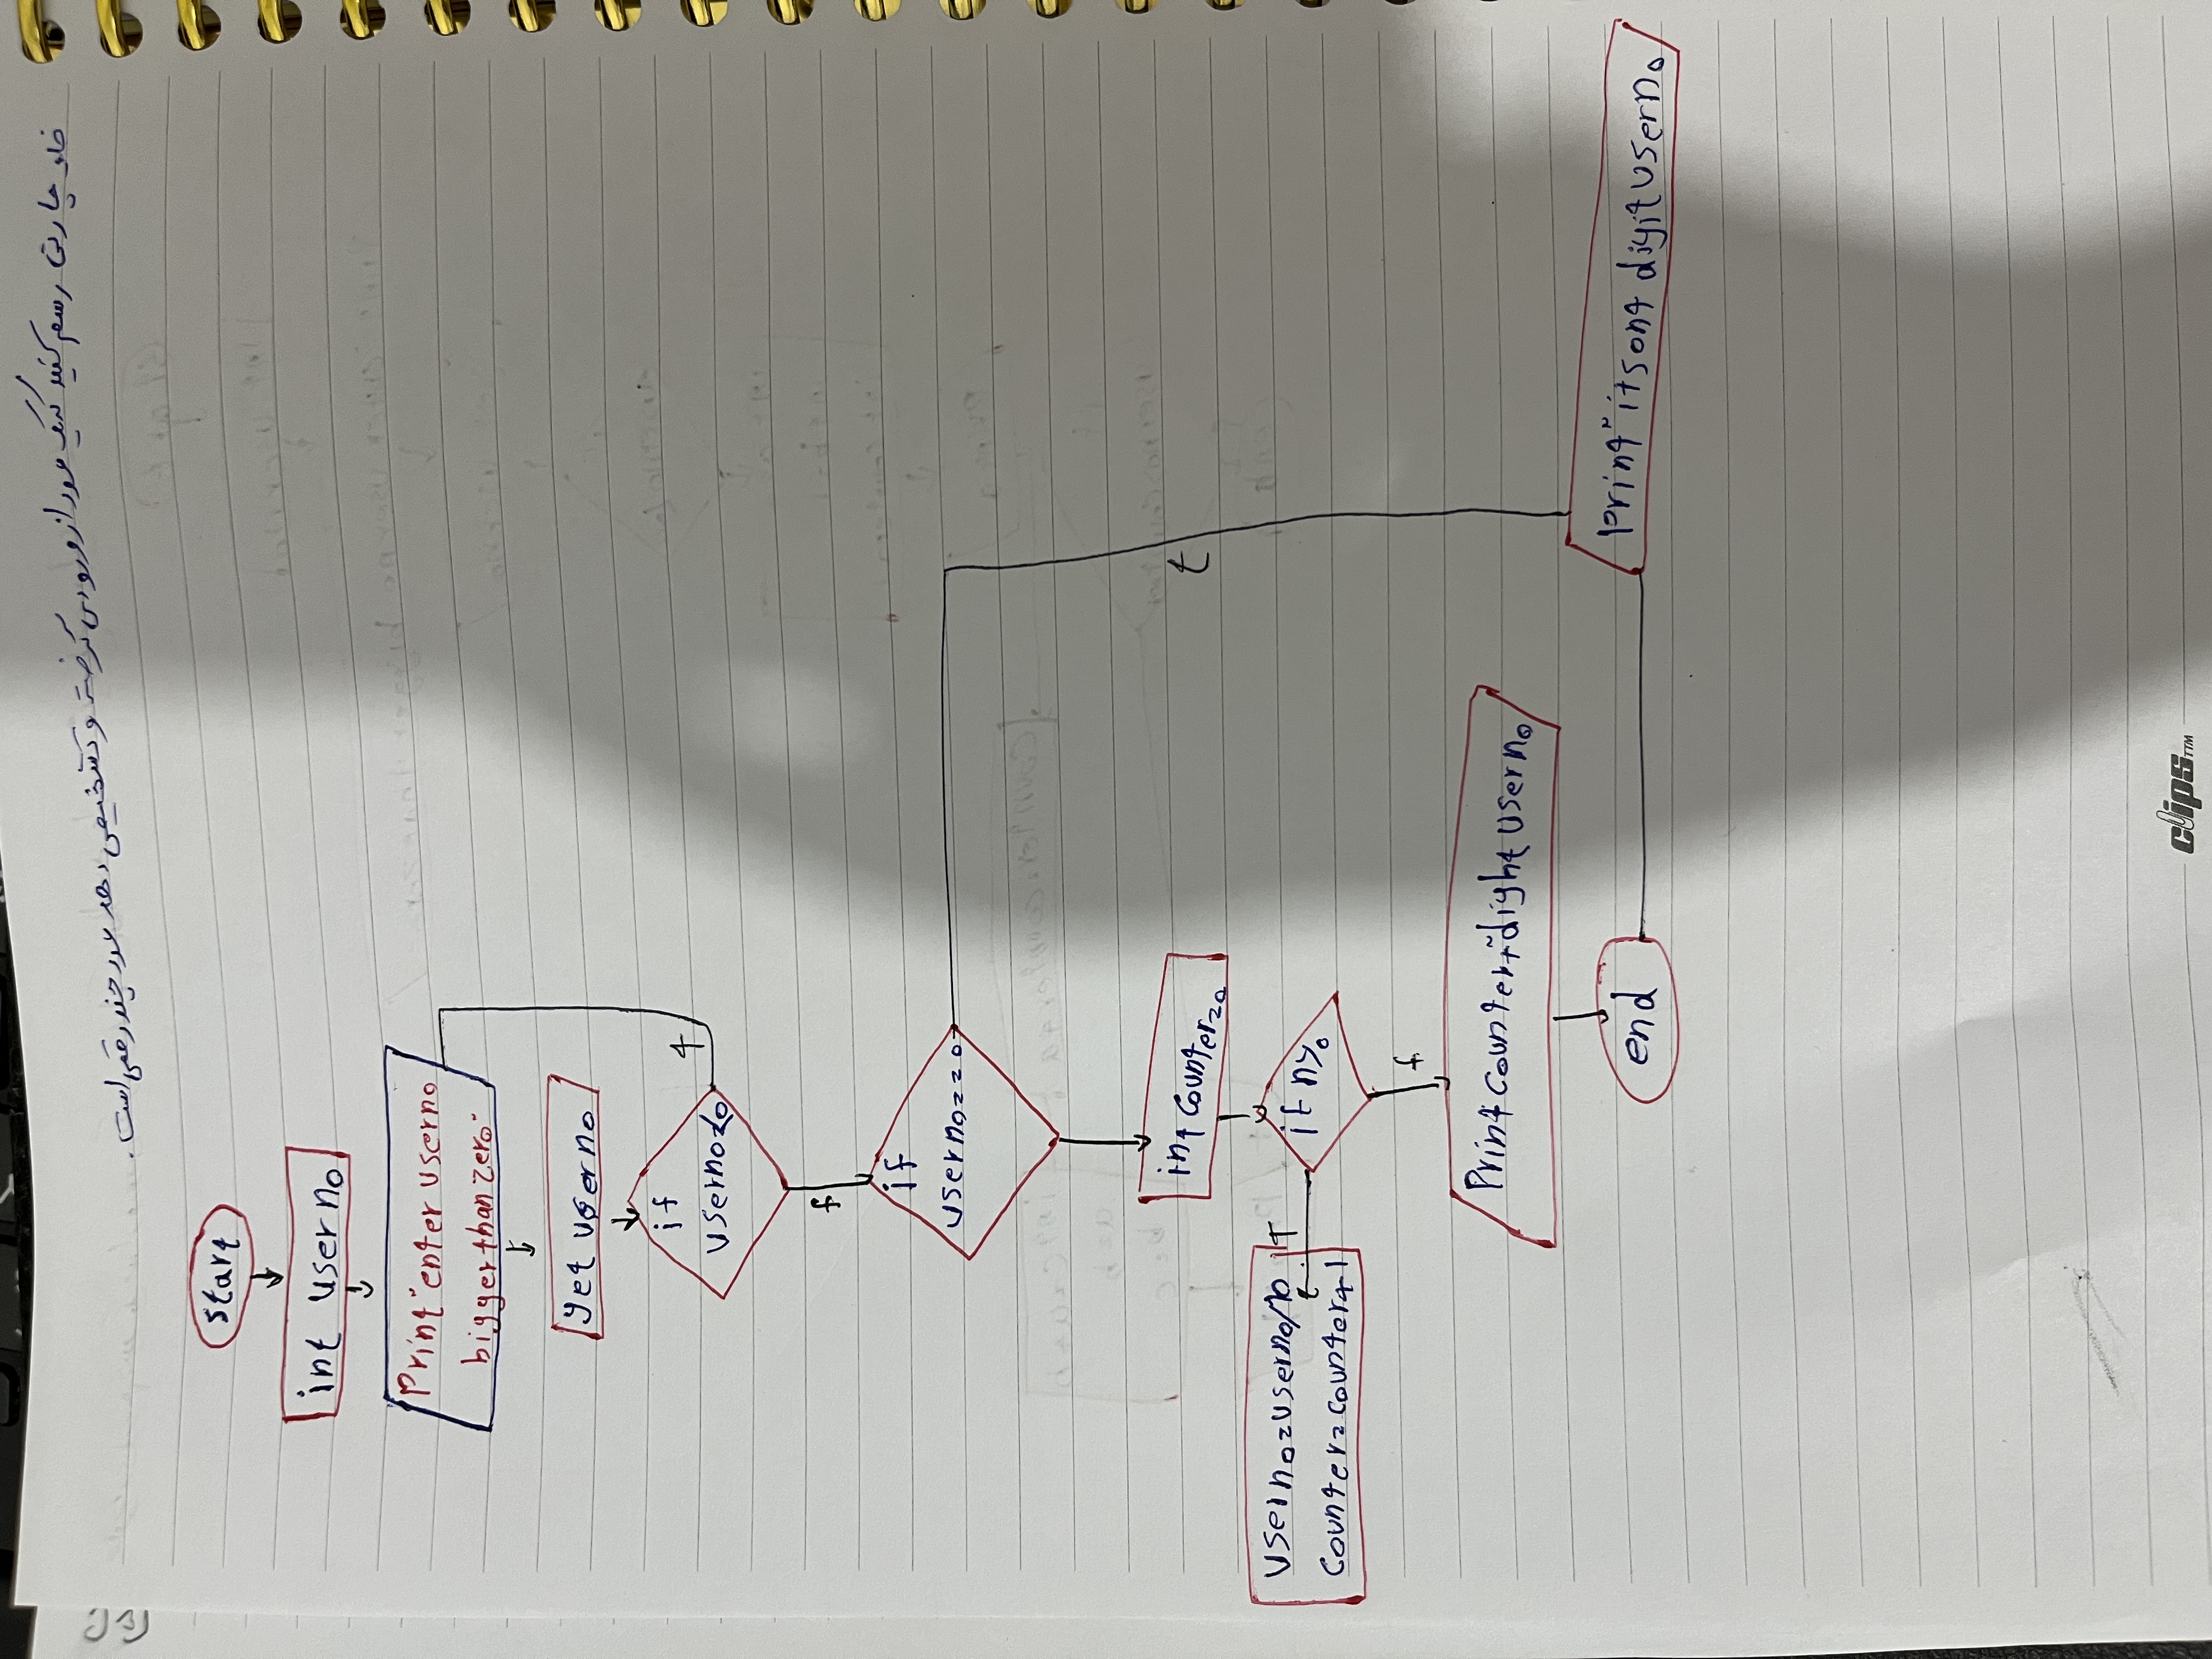 فلو چارتی رسم کنید که یک عدد از ورودی گرفته و تشخیص دهد عدد چند رقمی است.
start
int userno
Print "enter userno
bigger than zero"
get userno
if
userno<0
t
f
if
userno==0
t
int counter=0
if n>0
T
userno=userno/10
counter=counter+1
f
Print counter+"dight userno
end
print "its ont digit userno
clips TTM